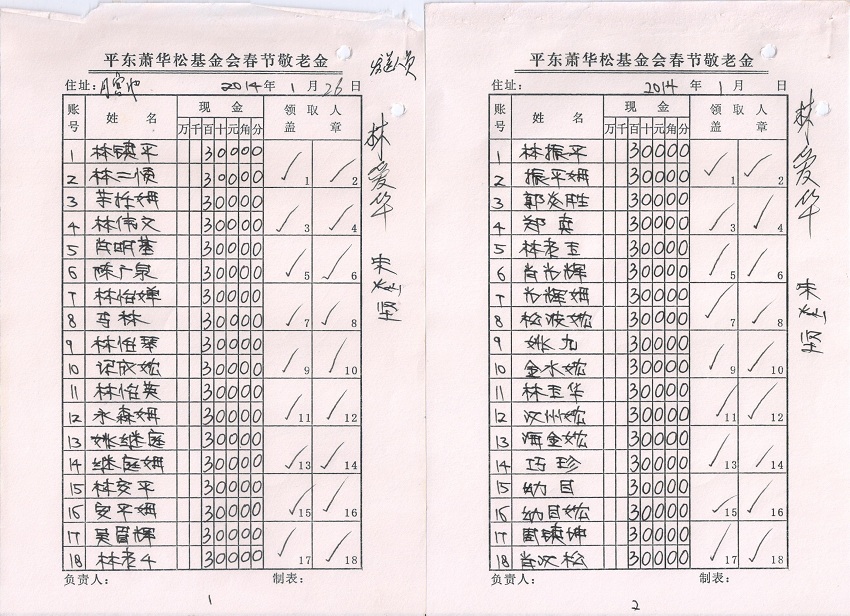 平东萧华松基金会春节敬老金
住址: 2014年 1 月 26 日
账号 姓名 现金 领取人盖章
万 千 百 十 元 角 分
1 林镇平 30000 1
2 林二顺 30000 2
3 30000 3
4 林伟文 30000 4
5 肖明基 30000 5
6 陈广泉 30000 6
7 林怡婵 30000 7
8 李林 30000 8
9 林怡琴 30000 9
10 30000 10
11 林怡英 30000 11
12 永森姆 30000 12
13 姚继庭 30000 13
14 继庭姆 30000 14
15 林安平 30000 15
16 安平姆 30000 16
17 吴晋辉 30000 17
18 林老4 30000 18
负责人: 制表:
1
发送人员
林爱华
朱灿坚
平东萧华松基金会春节敬老金
住址: 2014 年 1 月 日
账号 姓名 现金 领取人盖章
万 千 百 十 元 角 分
1 林振平 30000 1
2 振平姆 30000 2
3 郭炎胜 30000 3
4 郑奕 30000 4
5 林老玉 30000 5
6 肖光辉 30000 6
7 光辉姆 30000 7
8 松波 30000 8
9 姚九 30000 9
10 金水 30000 10
11 林玉华 30000 11
12 汉州 30000 12
13 海金 30000 13
14 巧珍 30000 14
15 幼目 30000 15
16 幼目 30000 16
17 30000 17
18 肖汉松 30000 18
负责人: 制表:
2
林爱华
朱灿坚